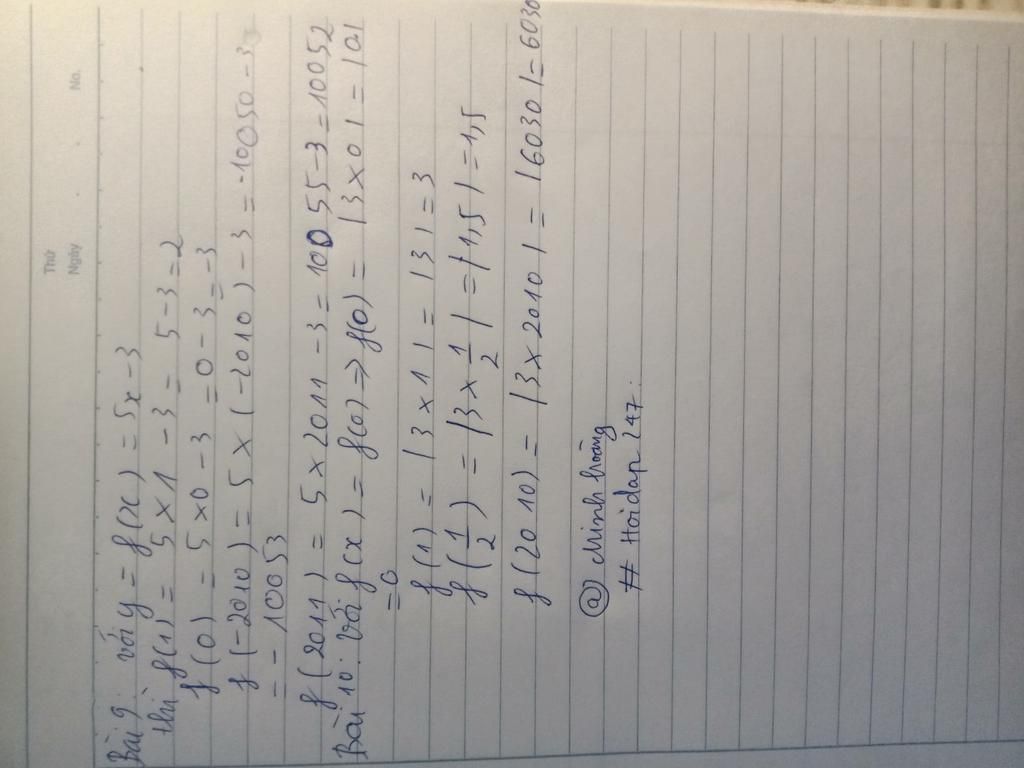 Thứ
Ngày . . No.
Bài 9: với y = f(x) = 5x - 3
thì f(1) = 5 x 1 - 3 = 5 - 3 = 2
f(0) = 5 x 0 - 3 = 0 - 3 = -3
f(-2010) = 5 x (-2010) - 3 = -10050 - 3
= -10053
f(2011) = 5 x 2011 - 3 = 10055 - 3 = 10052
Bài 10: với f(x) = f(0) => f(0) = |3 x 0| = |0|
= 0
f(1) = |3 x 1| = |3| = 3
f(1/2) = |3 x 1/2| = |1,5| = 1,5
f(2010) = |3 x 2010| = |6030| = 6030
@ Minh hoàng
# Hoidap247.